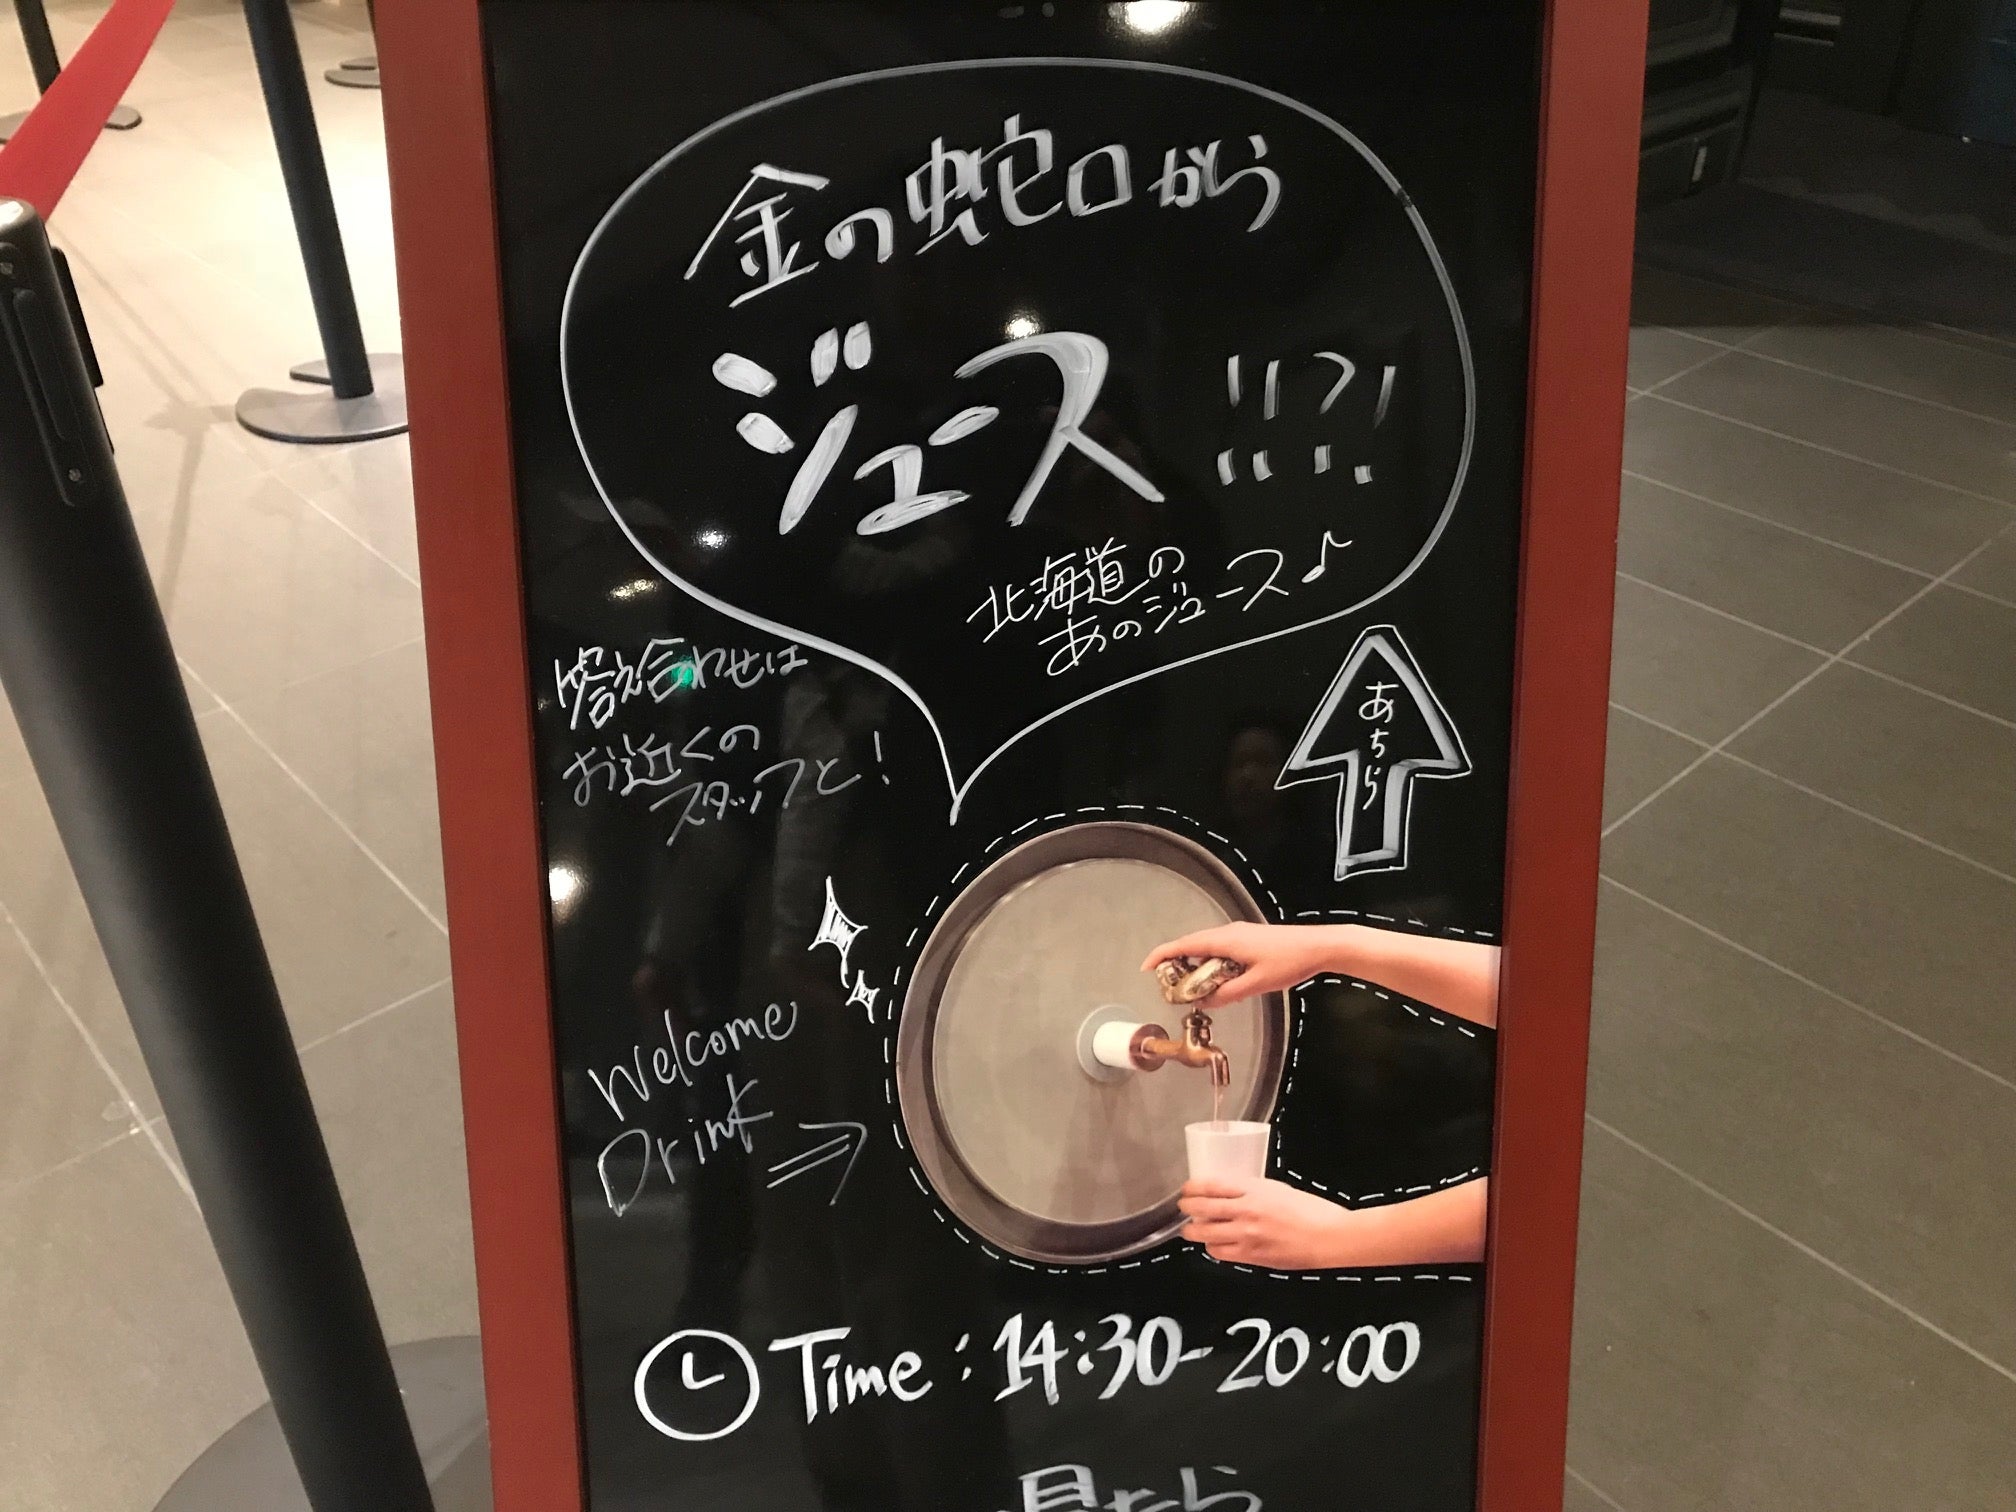 金の蛇口から
ジュース!!?!
北海道の
あのジュース♪
答え合わせは
お近くの
スタッフと!
あちら
Welcome
Drink
Time : 14:30-20:00
見たら